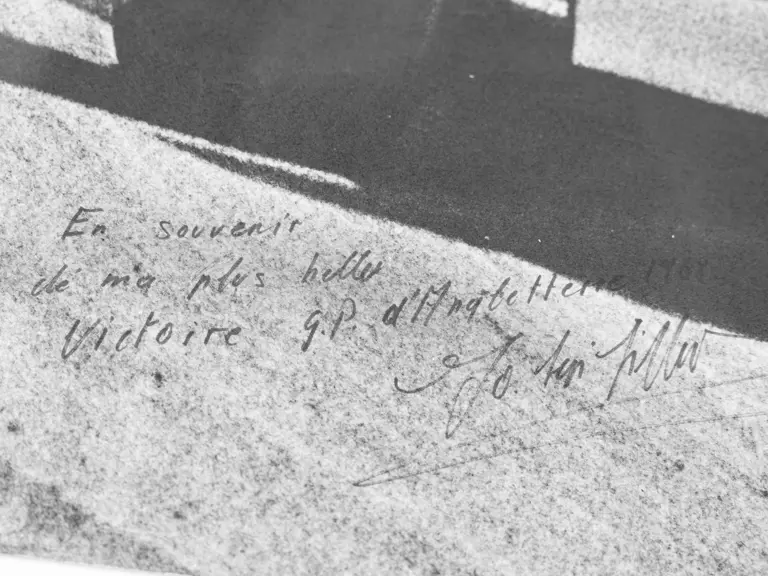 En souvenir
de ma plus belle
Victoire G.P. d'Angletterre
Jo Siffert